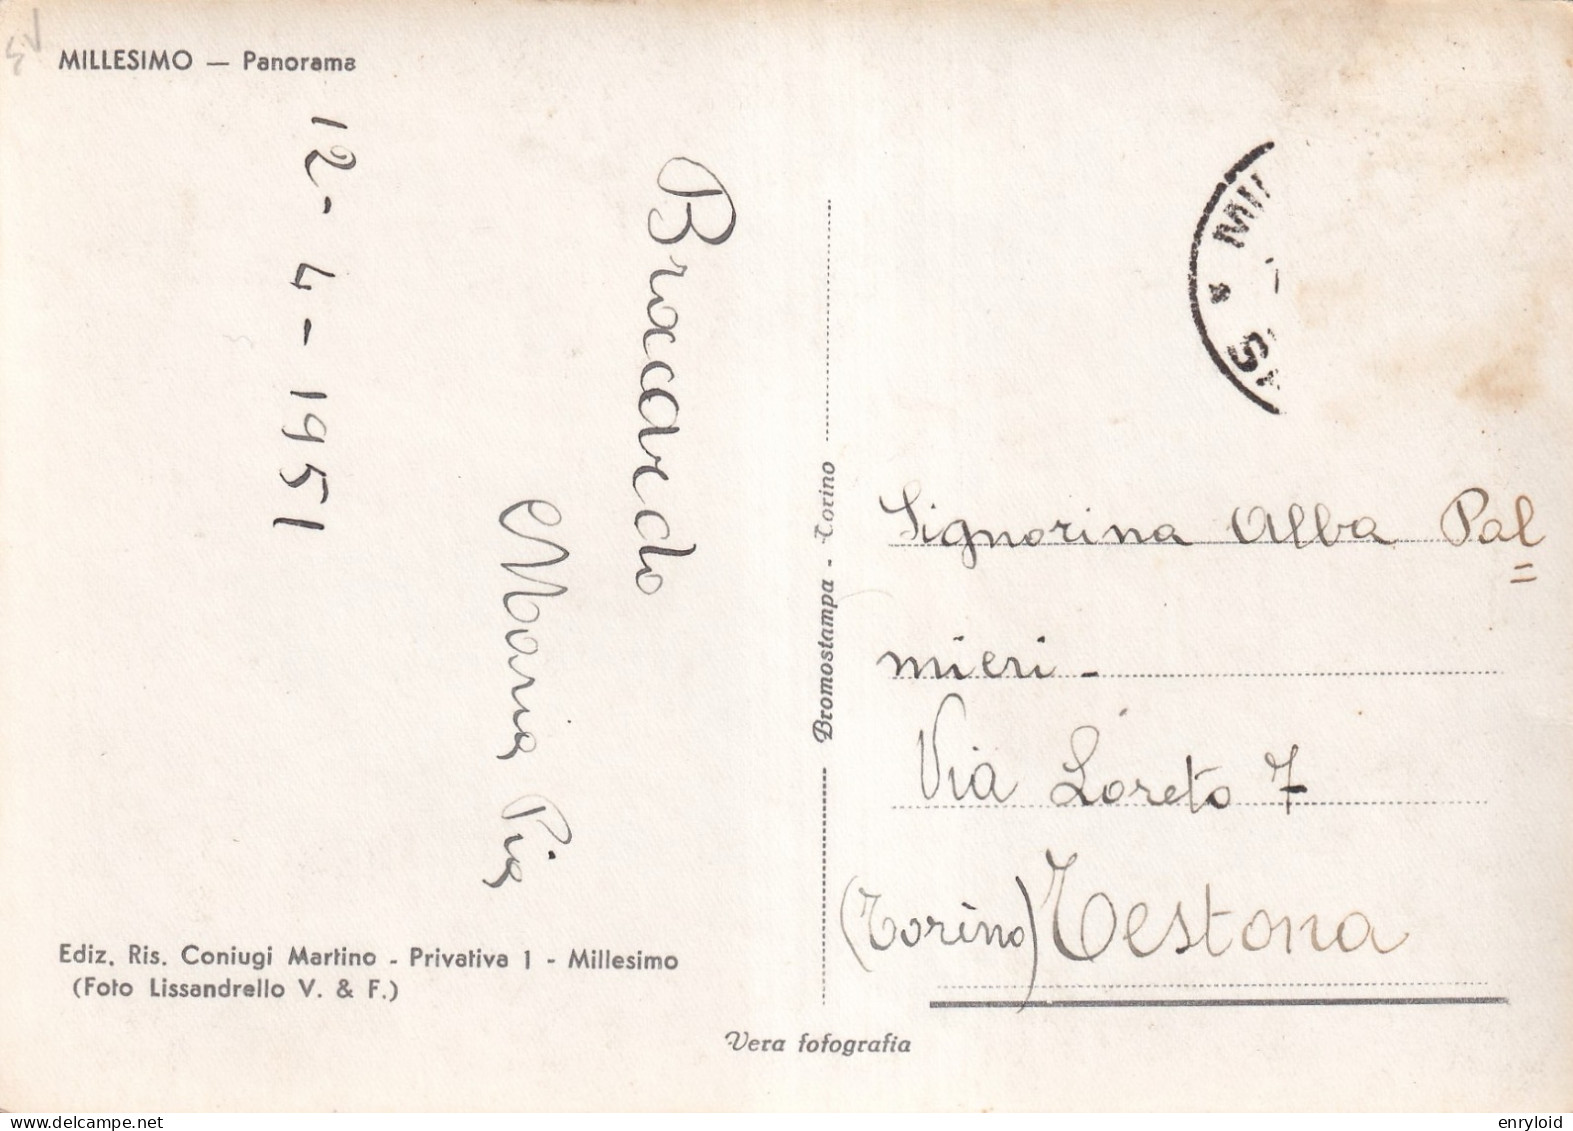 SV
MILLESIMO — Panorama
12-4-1951
Broccardo
Maria Pia
Ediz. Ris. Coniugi Martino - Privativa 1 - Millesimo
(Foto Lissandrello V. & F.)
Bromostampa - Torino
Vera fotografia
* MIL
SA
Signorina Alba Pal
=
mieri -
Via Loreto 7
(Torino) Testona
delcampe.net
enryloid